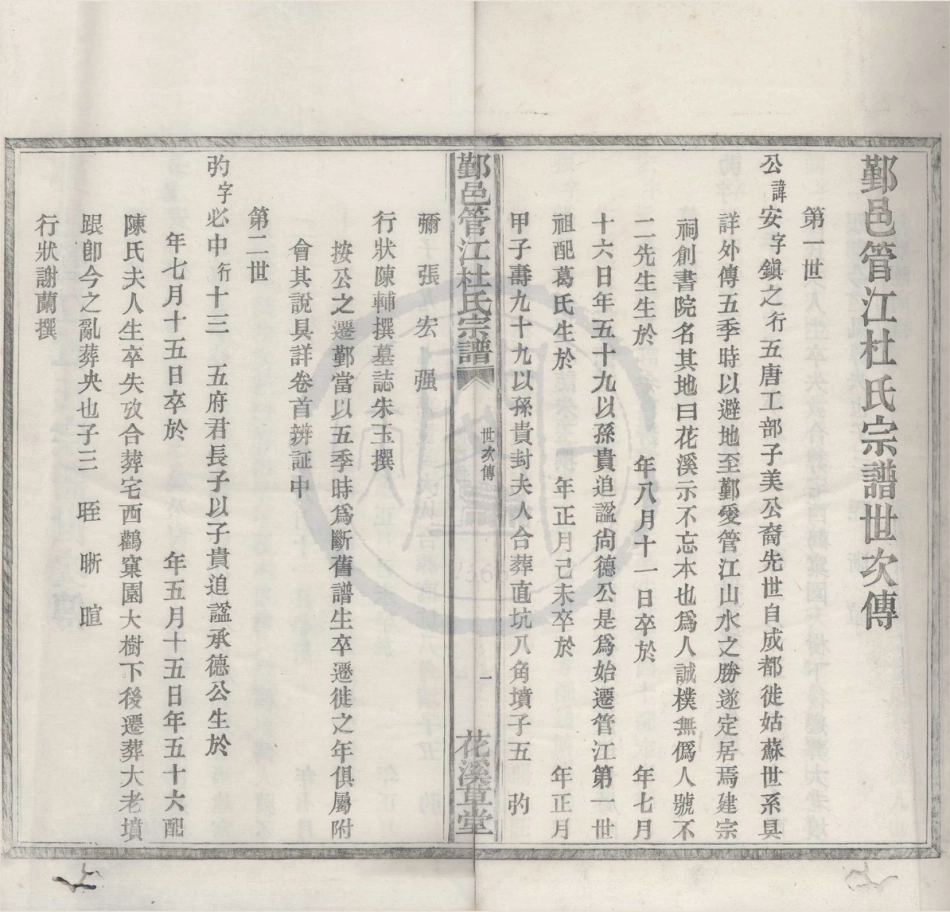 鄞邑管江杜氏宗譜世次傳
第一世
公諱安字鎭之行五唐工部子美公裔先世自成都徙姑蘇世系具
詳外傳五季時以避地至鄞愛管江山水之勝遂定居焉建宗
祠創書院名其地曰花溪示不忘本也爲人誠樸無僞人號不
二先生生於 年八月十一日卒於 年七月
十六日年五十九以孫貴追諡尙德公是爲始遷管江第一世
祖配葛氏生於 年正月己未卒於 年正月
甲子壽九十九以孫貴封夫人合葬直坑八角墳子五 彴
鄞邑管江杜氏宗譜 世次傳 一 花溪草堂
彌 張 宏 强
行狀陳輔撰墓誌朱玉撰
按公之遷鄞當以五季時爲斷舊譜生卒遷徙之年俱屬附
會其說具詳卷首辨証中
第二世
彴字必中行十三 五府君長子以子貴追諡承德公生於
年七月十五日卒於 年五月十五日年五十六配
陳氏夫人生卒失攷合葬宅西鸛窠園大樹下後遷葬大老墳
跟卽今之亂葬央也子三 晊 晣 暄
行狀謝蘭撰